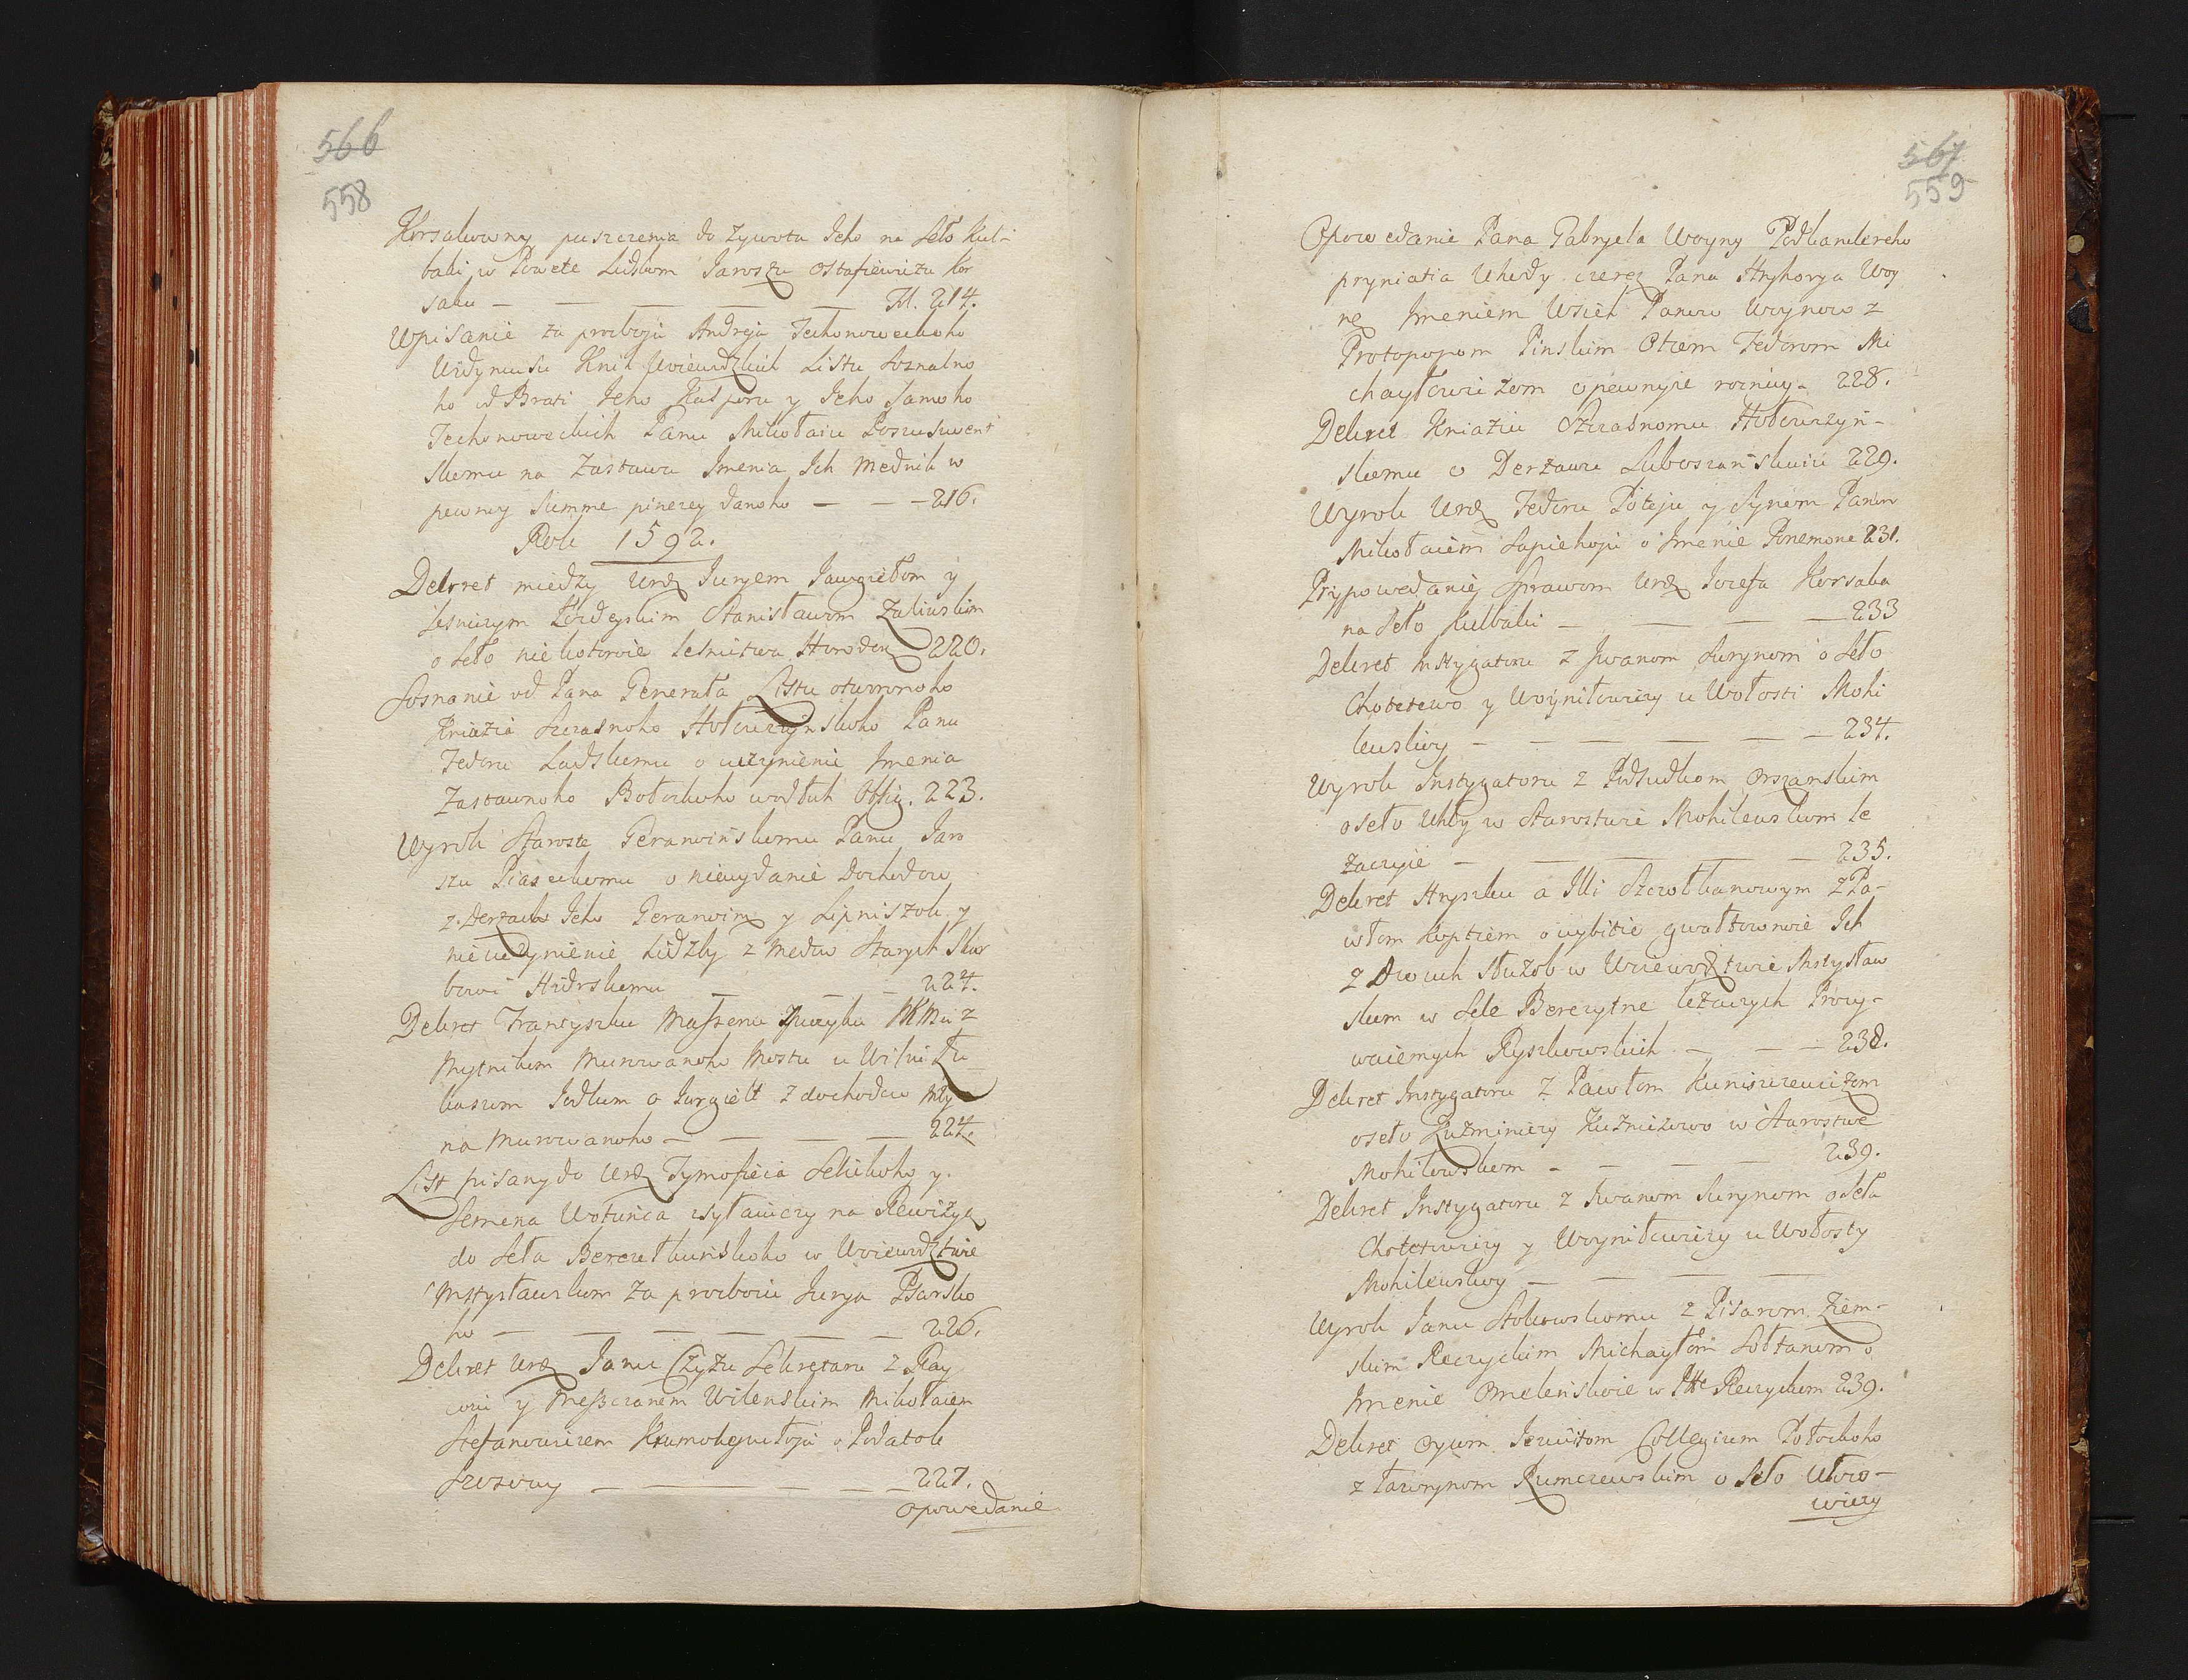 566
558
Korsakowny puszczenia do Zywota Jeho na Seło Kul-
baki w Powete Lidskom Jaroszu Ostafiewiczu Kor
saku — — — — — Fol. 214.
Wpisanie za prozboju Andreja Techonoweckoho
Widymusu Knih Woiewodzkich Listu Soznalno
ho od Brati Jeho Kaspora y Jeho Samoho
Techonoweckich Panu Mikołaiu
skomu na Zastawu Imenia Ich Mednik w
pewnoy Summe pinezey danoho — — — 216.
Rok 1592.
Dekret miedzy Urodz Juryem Jawgiełom y
Lesniczym Stanisławom Zaliwskim
o Seło niekotoroie Lesnictwa Horodon 220.
Soznanie od Pana Generała Listu otworonoho
Kniazia Szczasnoho Hołowczynskoho Panu
Fedoru Ladskomu o uczynienie Imenia
Zastawnoho Bołockoho wodłuh Oblig. 223.
Wyrok Staroste Geranoinskomu Panu Jaro
szu Piaseckomu o niewydanie Dochodow
z Derzawы Jeho Geranoin y Lipniszok y
nieuczynienie Lidzby z Medow Starych Skar
bowi Hidrskomu — — — 224.
Dekret Francyszku Maffonu Muzyku JKMci z
Mytnikom Murowanoho Mostu u Wilni Łu
kaszom Jodkom o Jurgielt z dochodow My
na Murowanoho — — — — 224.
List pisany do Urodz Tymofieia Selickoho y
Semena Wotunca wysłanczy na Rewizyą
do Seła Berezetkunskoho w Woiewodztwie
Mstysławskom za prozboiu Jurya Psarsko
ho — — — — — — 226.
Dekret Urodz Janu Czyzu Sekretaru z Ray
coiu y Meszczanem Wilenskim Mikołaiem
Stefanowiczem o Podatok
Szosowy — — — — — 227.
Opowedanie
567
559
Opowedanie Pana Gabryela Woyny Podkanclereho
pryniatia Uhody czerez Pana Hryhorya Woy
ny Imeniem Wsich Panow Woynow z
Protopopom Pinskim Otcem Fedorom Mi
chayłowiczom o pewnyie roznicy - 228.
Dekret Kniaziu Szczasnomu Hołowczyn-
skomu o Derzawu Luboszanskuiu 229.
Wyrok Urodz Fedoru Poteju y Synom Panom
Mikołaiem Sapiehoju o Imenie Ponemone 231.
Prypowedanie Sprawom Urodz Jozefa Korsaka
na Seło Kulbaki — — — — 233
Dekret Instygatoru z Iwanom Surynom o Seło
Chotetowo y Woyniłowiczy u Wołosti Mohi
lewskoy — — — — — — 234.
Wyrok Instygatoru z Podsudkom Orszanskim
o seło Uhły w Starostwie Mohilewskom le
zaczyie — — — — 235.
Dekret Hryszku a Illi Szczołkanowym z Pa-
włom Koptiem o wybitie gwałtownoie Ich
z Dwuch słuzob w Woiewodztwie Mstysław
skom w Sele Berezytne lezaczych Prozy-
waiemych Ryszkowskich — — — 238.
Dekret Instygatoru z Pawłom Kuniszczewiczom
o seło Kuzminiczy Kuznicowo w Starostwe
Mohilewskom — — — — 239.
Dekret Instygatoru z Iwanom Surynom o Seła
Chotetowiczy y Woyniłowiczy u Wołosty
Mohilewskoy — — — —
Wyrok Janu Stokowskomu z Pisarom Ziem-
skim Reczyckim Michayłom Sołtanom o
Imenie Omelenskoie w Ptte Reczyckom 239.
Dekret Oycom Jezuitom Collegium Połockoho
z Ławrynom Rumczewskim o Seło Utwo-
wiczy